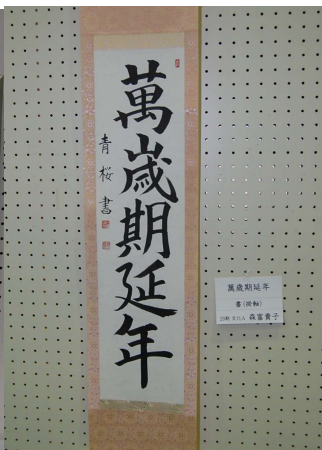 萬歲期延年
青桜書
萬歲期延年
書(掛軸)
森富貴子